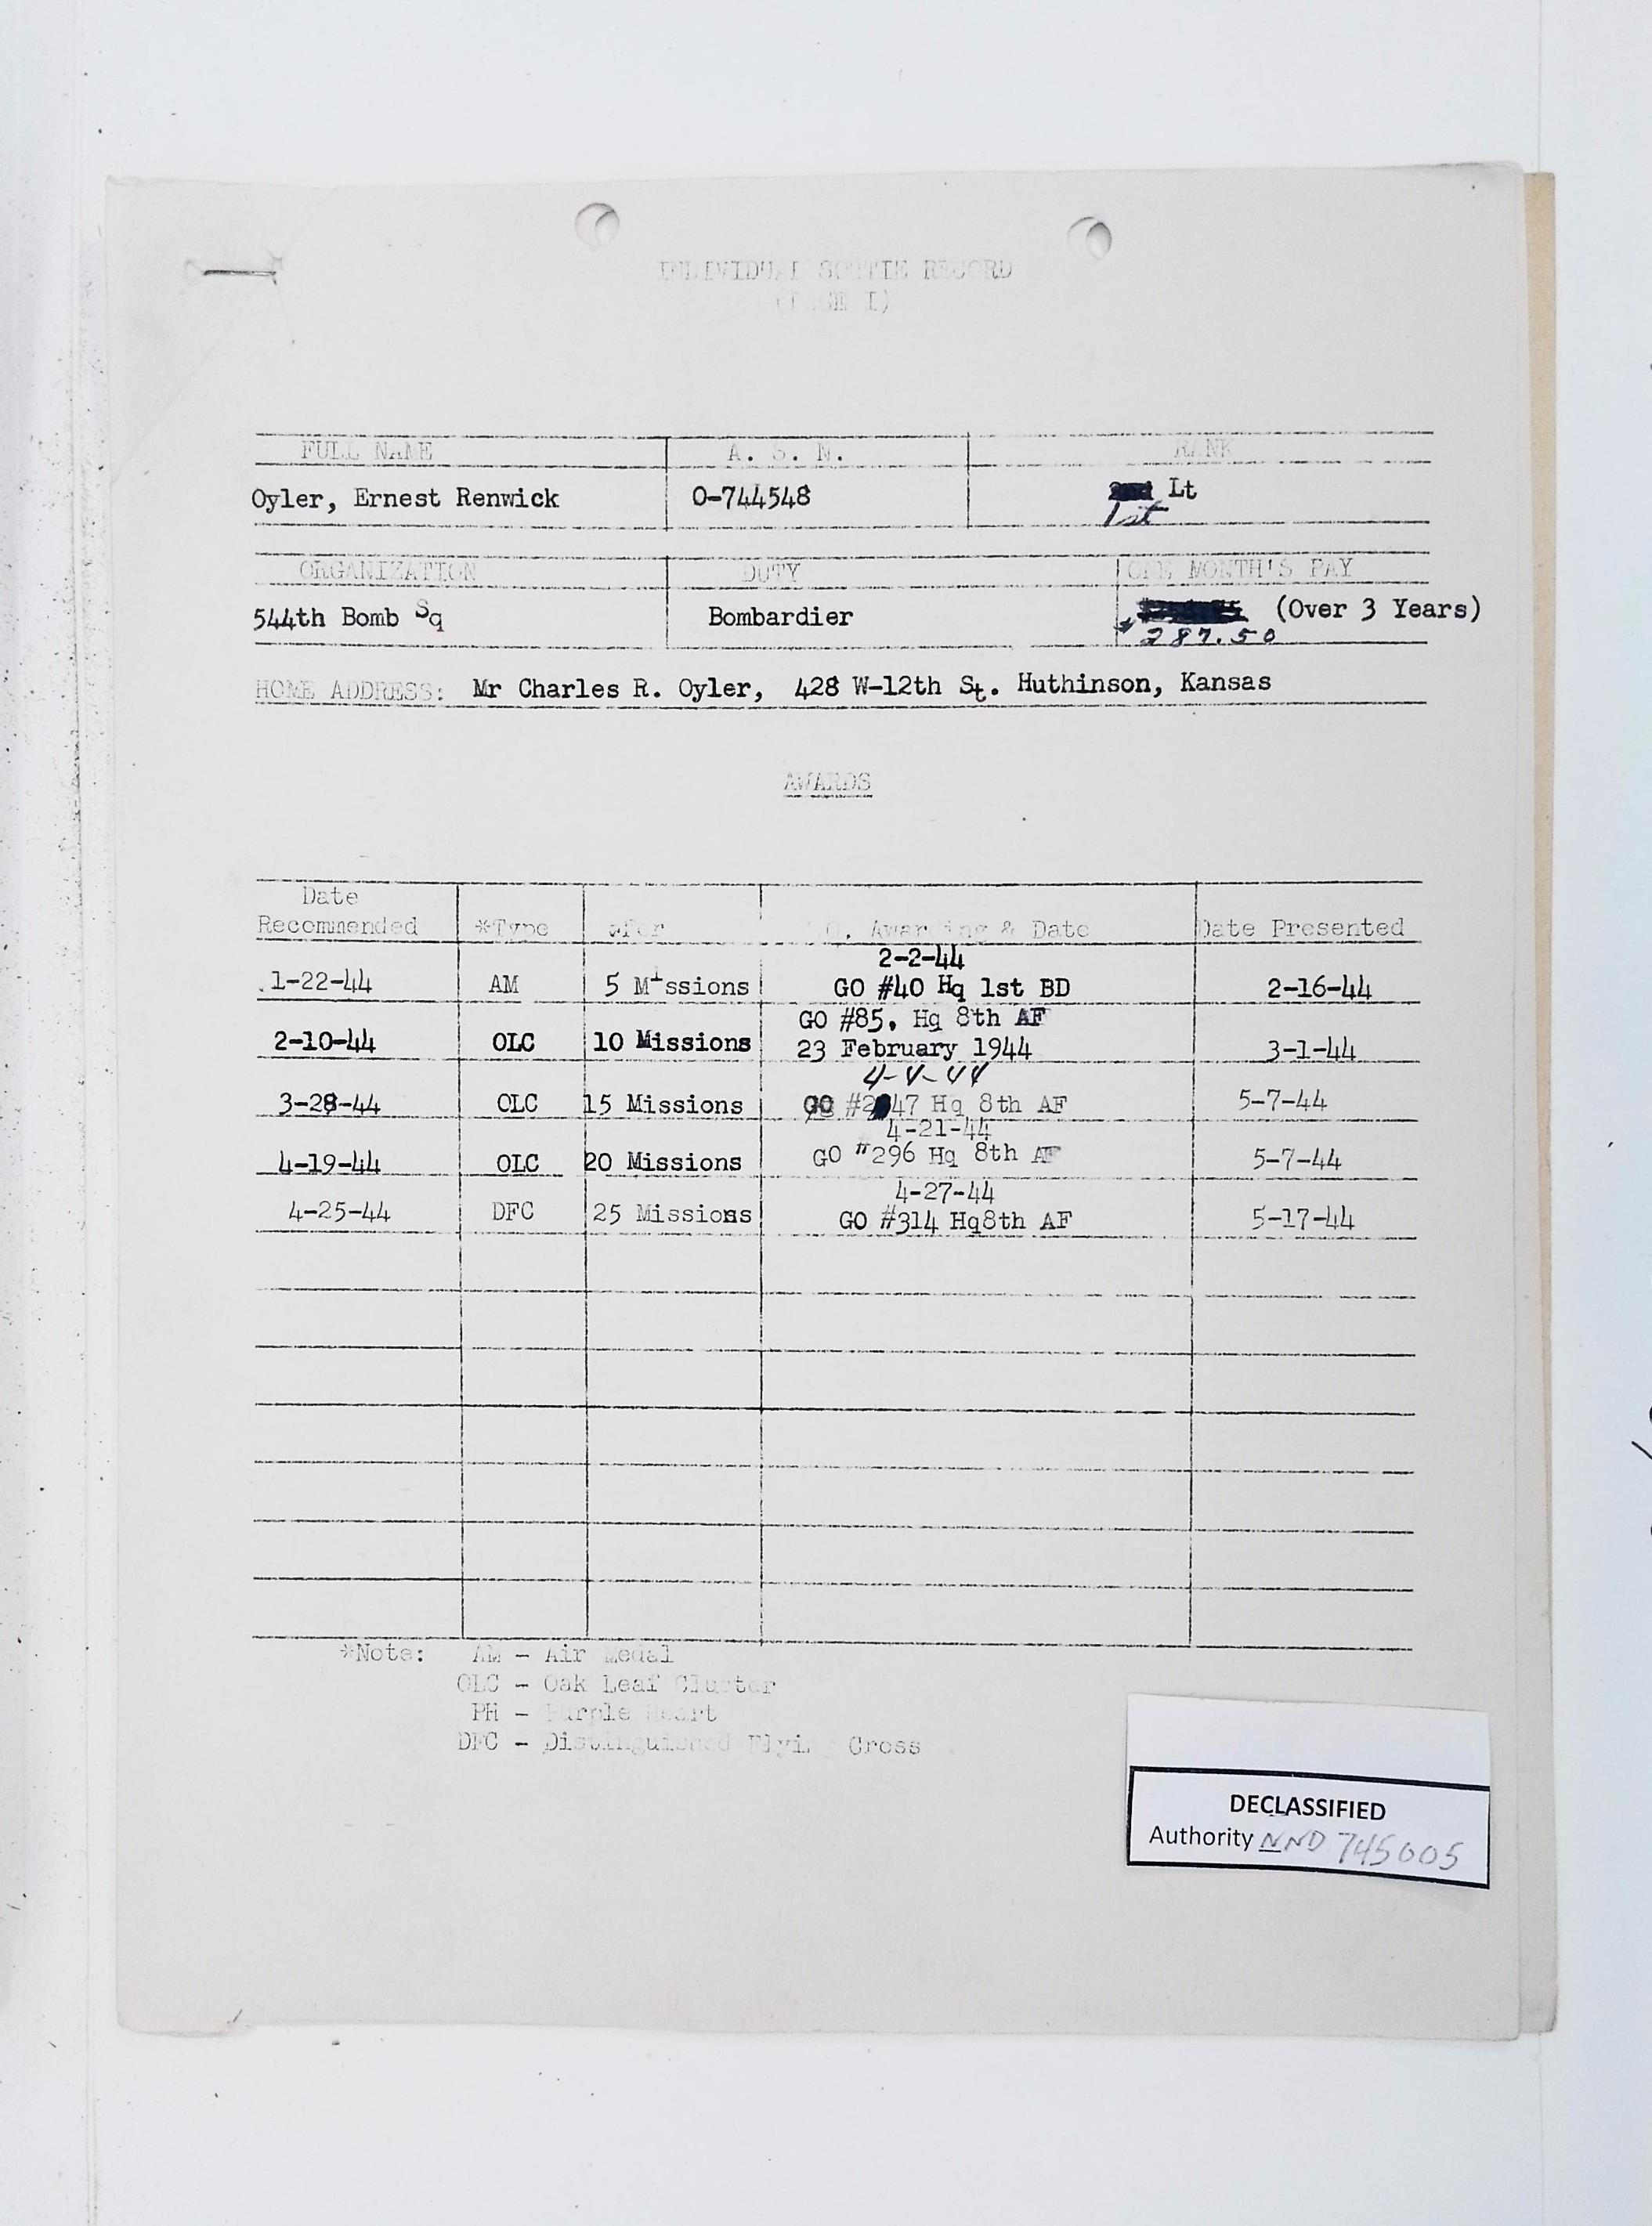 INDIVIDUAL SORTIE RECORD
(PAGE I)
FULL NAME A. S. N. RANK
Oyler, Ernest Renwick O-744548 2nd Lt
1st
ORGANIZATION DUTY ONE MONTH'S PAY
544th Bomb Sq Bombardier (Over 3 Years)
$287.50
HOME ADDRESS: Mr Charles R. Oyler, 428 W-12th St. Huthinson, Kansas
AWARDS
Date
Recommended *Type *For G.O. Awarding & Date Date Presented
2-2-44
1-22-44 AM 5 Missions GO #40 Hq 1st BD 2-16-44
GO #85, Hq 8th AF
2-10-44 OLC 10 Missions 23 February 1944 3-1-44
4-4-44
3-28-44 OLC 15 Missions GO #247 Hq 8th AF 5-7-44
4-21-44
4-19-44 OLC 20 Missions GO #296 Hq 8th AF 5-7-44
4-27-44
4-25-44 DFC 25 Missions GO #314 Hq8th AF 5-17-44
*Note: AM - Air Medal
OLC - Oak Leaf Cluster
PH - Purple Heart
DFC - Distinguished Flying Cross
DECLASSIFIED
Authority NND 745005